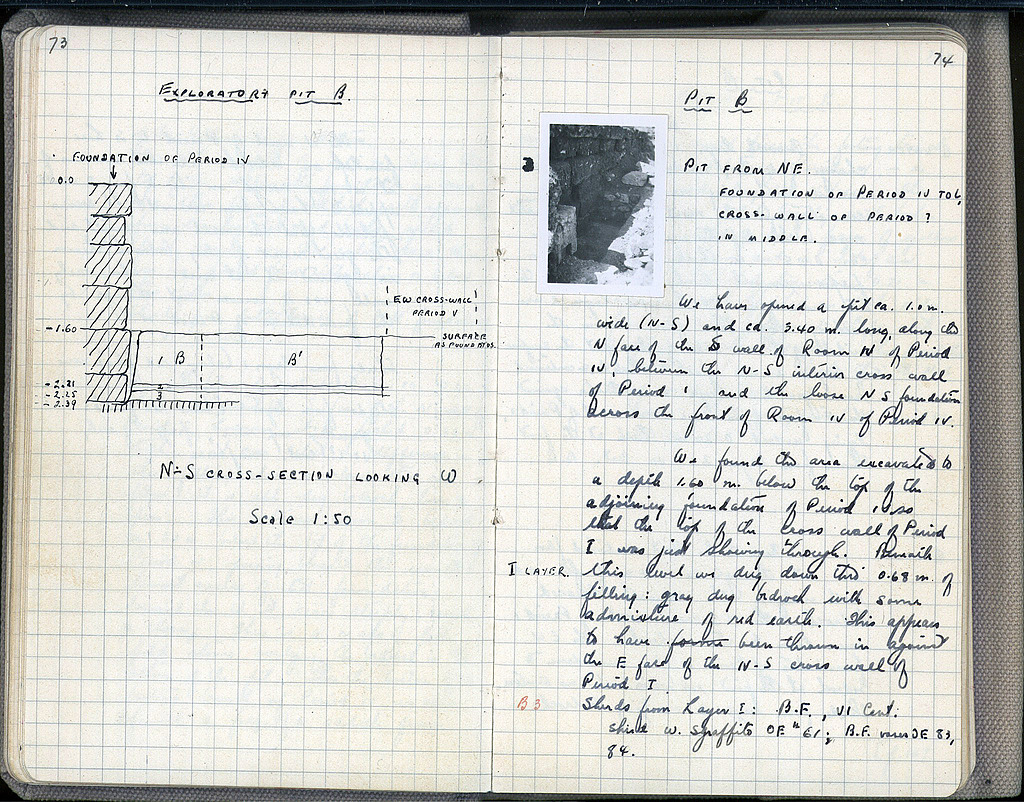 73
EXPLORATORY PIT B.
FOUNDATION OF PERIOD IV
0.0
EW CROSS-WALL
PERIOD V
-1.60
SURFACE
AS FOUND
1 B
B'
-2.21
2
-2.25
3
-2.39
N-S CROSS-SECTION LOOKING W
Scale 1:50
74
PIT B
PIT FROM NE.
FOUNDATION OF PERIOD IV TO L,
CROSS-WALL OF PERIOD ?
IN MIDDLE.
We have opened a pit ca. 1.0 m.
wide (N-S) and ca. 3.40 m. long, along the
N face of the S wall of Room IV of Period
IV, between the N-S interior cross wall
of Period I and the loose NS foundation
across the front of Room IV of Period IV.
We found the area excavated to
a depth 1.60 m. below the top of the
adjoining foundation of Period IV so
that the top of the cross wall of Period
I was just showing through. Beneath
I LAYER. this level we dug down thru 0.68 m. of
filling: gray dug bedrock with some
admixture of red earth. This appears
to have been thrown in against
the E face of the N-S cross wall of
Period I
B 3 Sherds from Layer I: B.F., VI Cent.
sherd w. sgraffito OE 61; B.F. vases OE 83,
84.